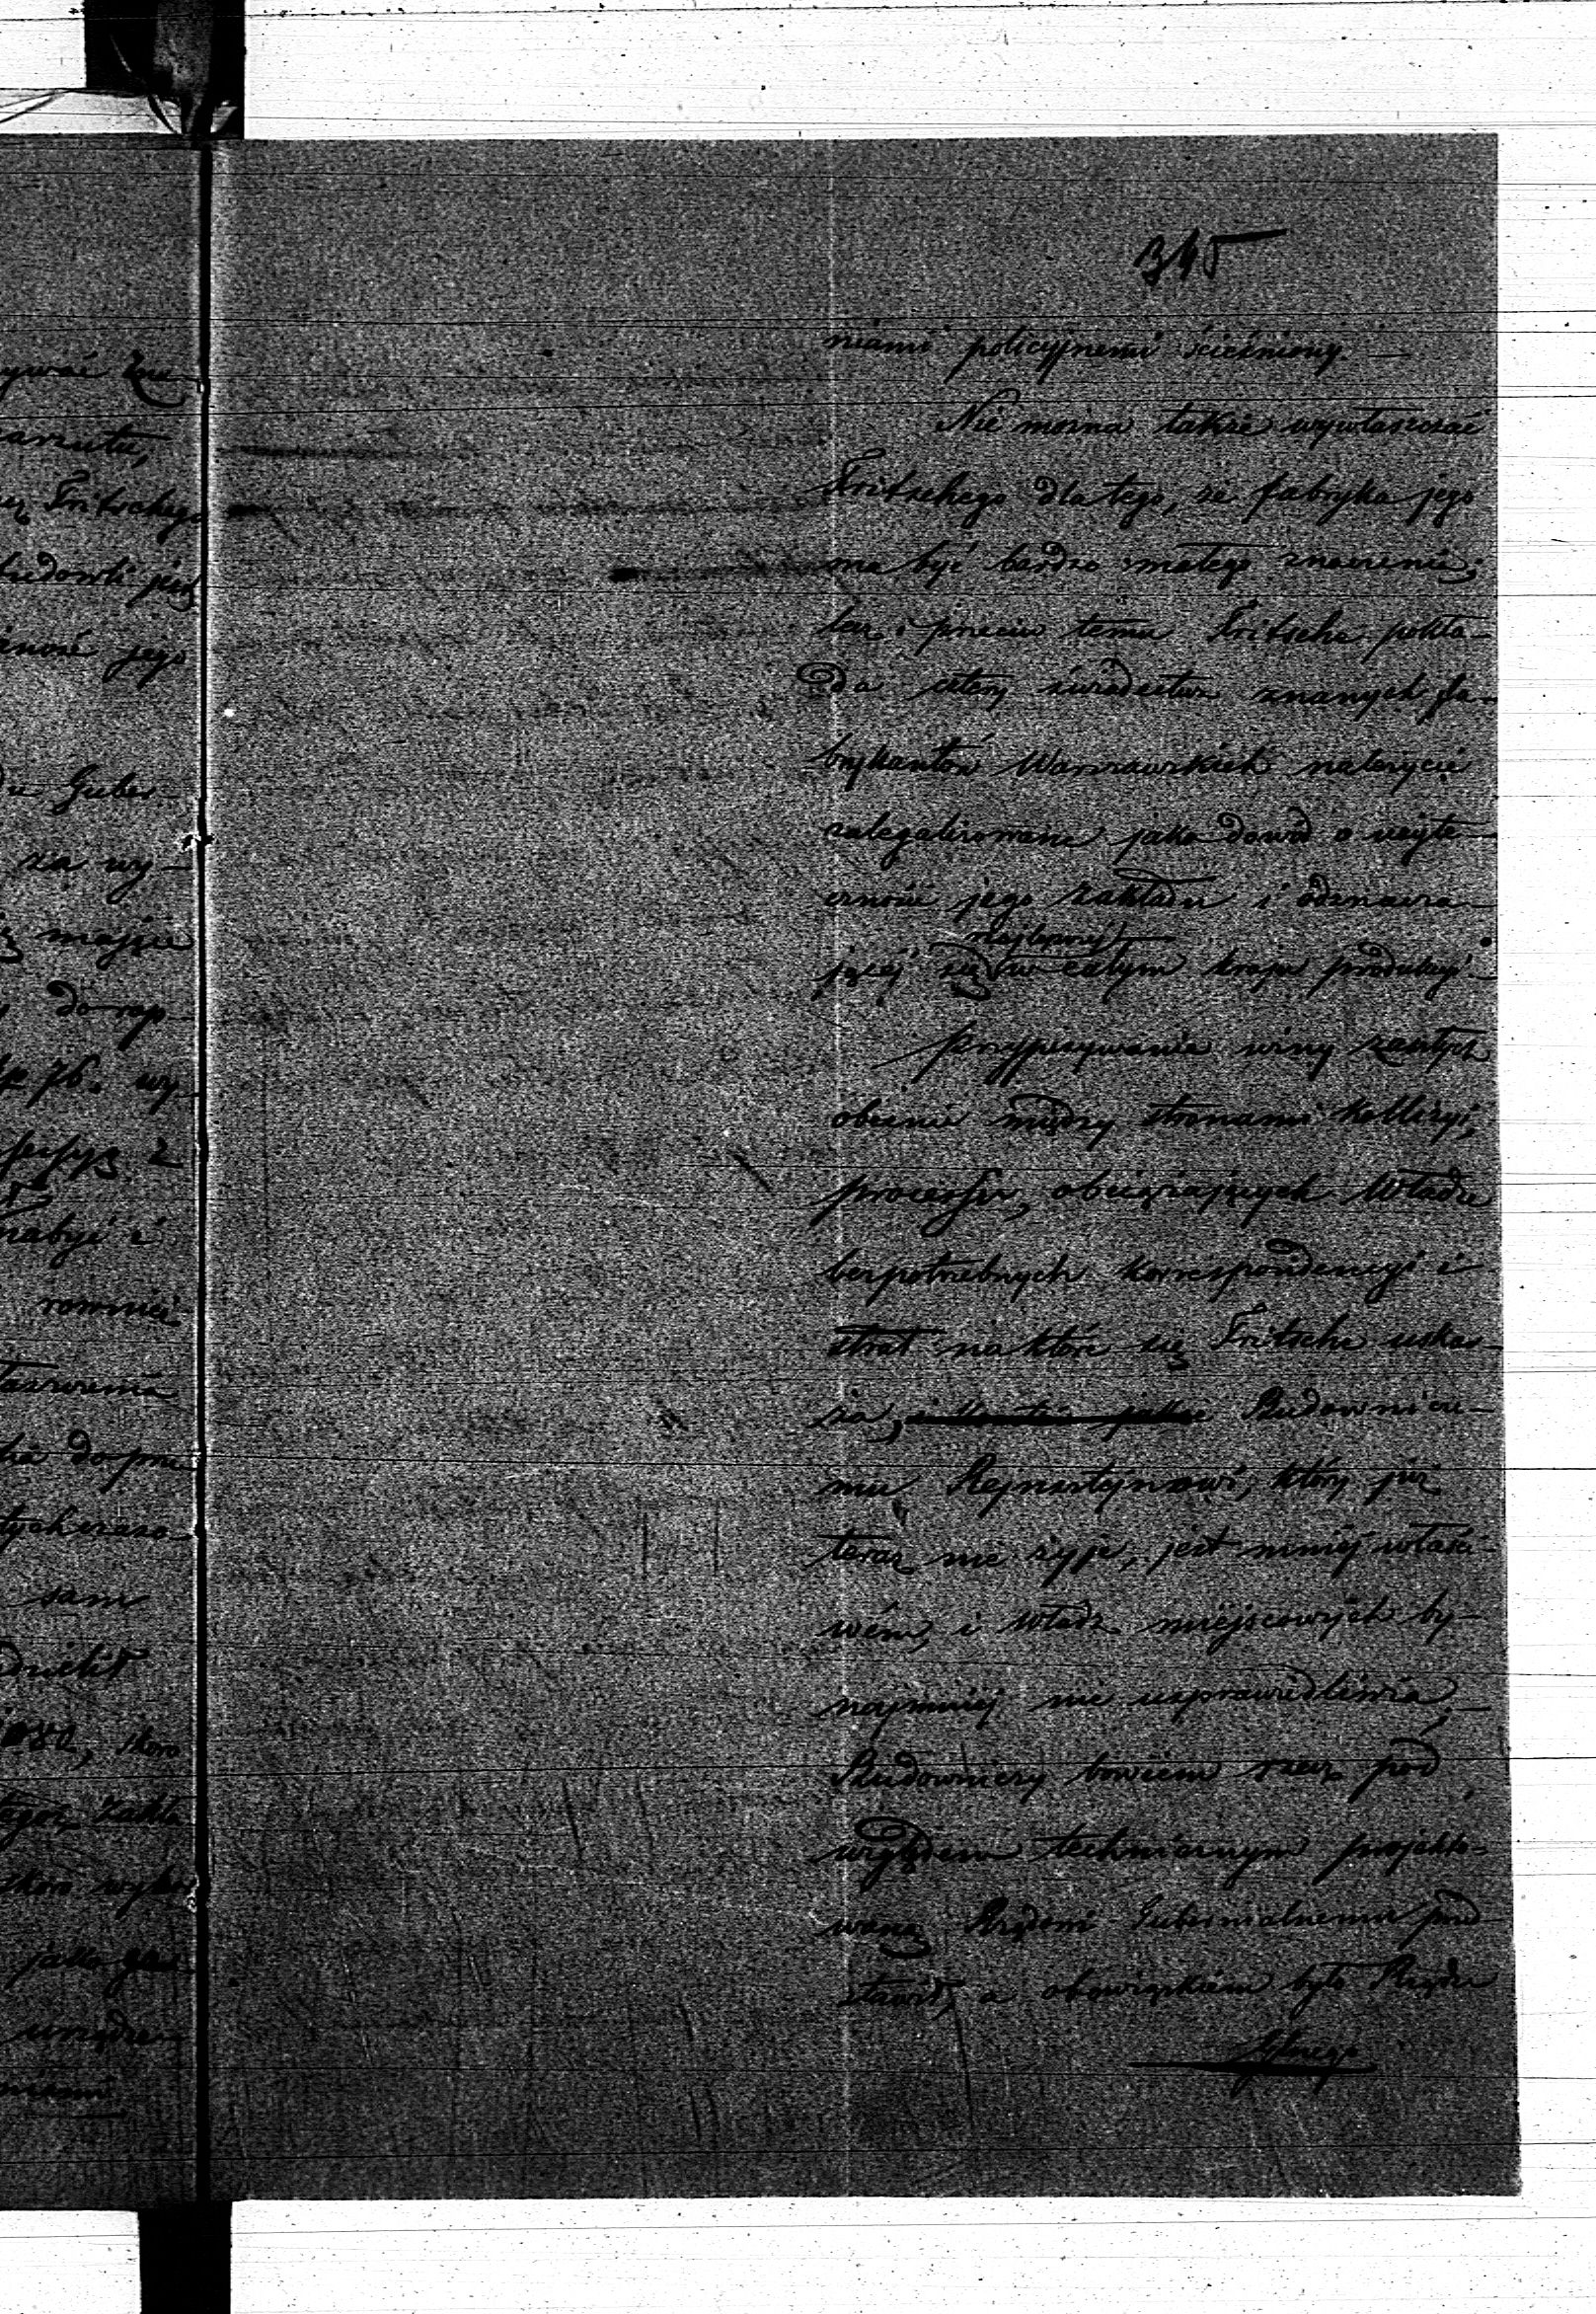 345
niami policyjnemi ścieśniony. —
Nie można także wywłaszczać
Fritschego dla tego, że fabryka jego
ma być bardzo małego znaczenia;
bo i przeciw temu Fritsche pokła-
da cztery świadectwa znanych fa-
brykantów Warszawskich należycie
zalegalizowane jako dowód o użyte-
czności jego zakładu i odznacza-
najlepszej
jącej się w całym kraju produkcyi
Przypisywanie winy zaszłych
obecnie między stronami kollizyi,
processu, obciążających Władze
bezpotrzebnych korrespondencyi i
strat na które się Fritsche uska-
rża, Budownicze-
mu Rejnsztejnowi, który już
teraz nie żyje, jest mniej właści-
wém, i Władz miejscowych by-
najmniej nie usprawiedliwia;
Budowniczy bowiem rzecz pod
względem technicznym projekto-
waną Rządowi Gubernialnemu przed
stawił, a obowiązkiem było Rządu
ywać
Fritschego
jego
du Guber-
za wy-
mające
do rop-
76. wy-
nabyć i
równiej
taszczenia
do prze
sam
skoro
zakła
skoro wyko
jako
urządze-
niami